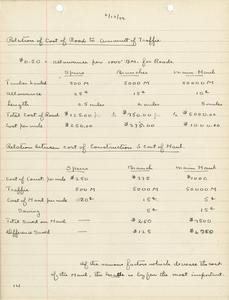 Relation of Cost of Road to Amount of Traffic
$0.50 = allowance per 1000' B.M. for Roads.
Spurs Branches Main Haul
Timber hauled 500 M 5000 M 50000 M
Allowance 25¢ 15¢ 10¢
Length 2 miles 5 miles
Total Cost of Road $125.00 $750.00 $5000.00
Cost per mile $250.00 $375.00 $1000.00
Relation between Cost of Construction & Cost of Haul.
Spurs Branch Main Haul
Cost of Const. per mile $250 $375 $1000
Traffic 500 M 5000 M 50000 M
Cost per mile 20¢ 15¢
Saving 5¢ 15¢
Total Saved on Haul $250 $7500
Difference Saved $125
Of the various factors which decrease the cost
of the Haul, the is by far the most important.